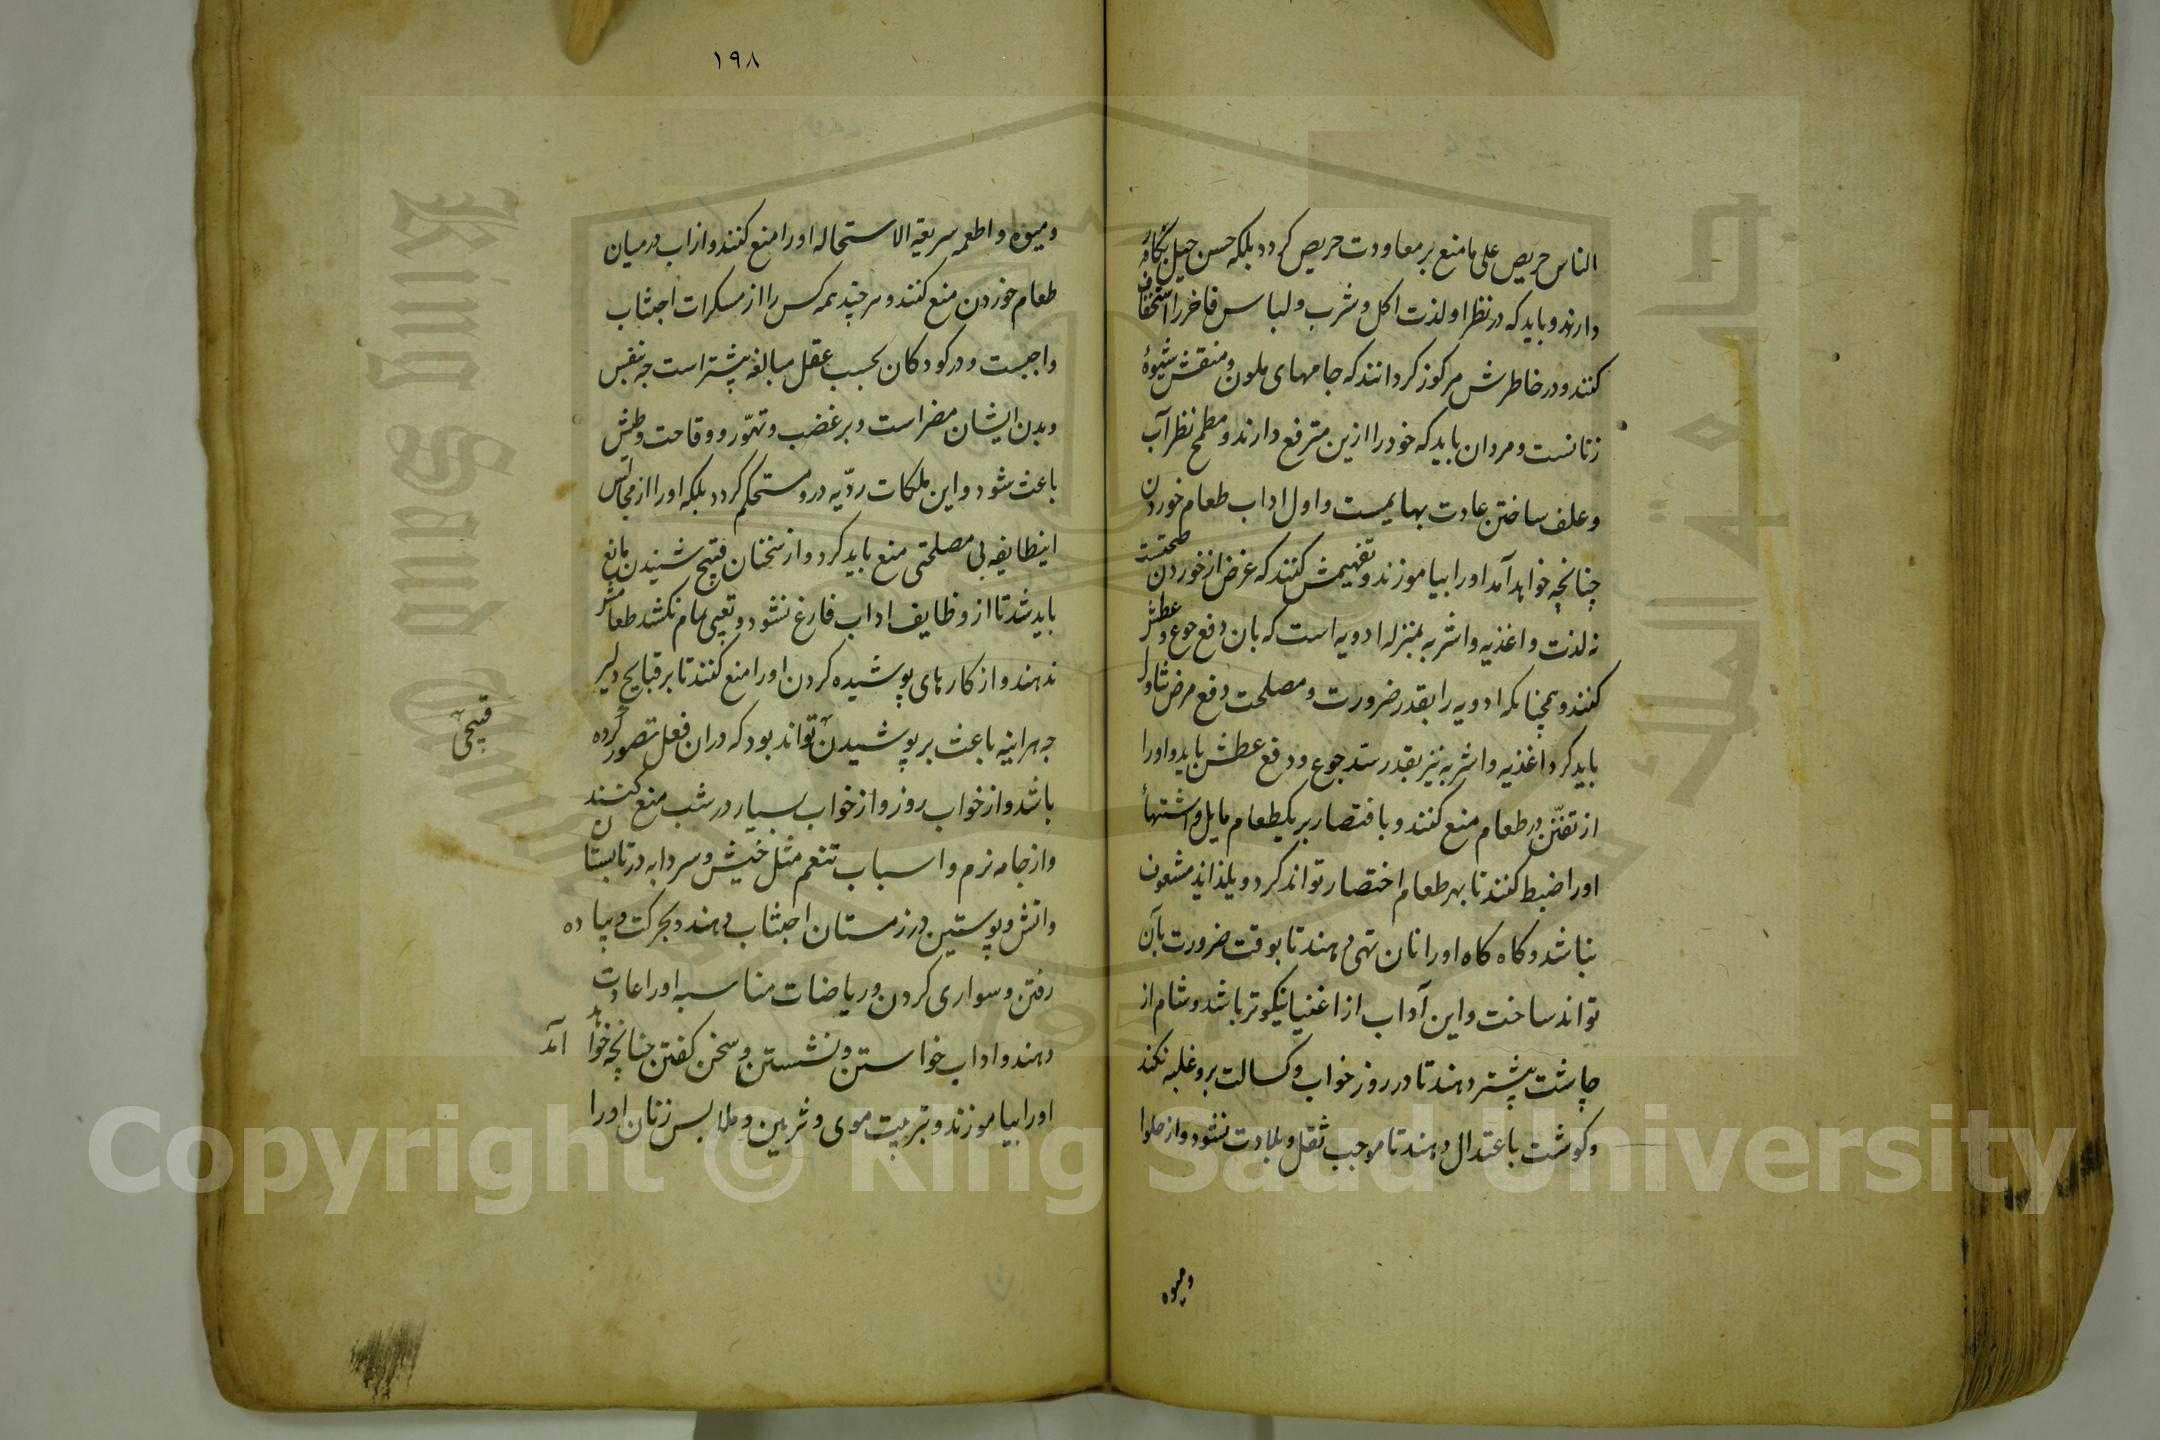 الناس حریص علی ما منع بر معاودت حریص کردد بلکه حسن حیل بکار
دارند و باید که در نظر او لذت اکل و شرب و لباس فاخر را استخفاف
کنند و در خاطرش مرکوز کردانند که جامهای ملون و منقش شیوهٔ
زنانست و مردان باید که خود را ازین مترفع دارند و مطمح نظر آب
و علف ساختن عادت بهایمست و اول اداب طعام خوردن
چنانچه خواهد آمد او را بیاموزند و تفهیمش کنند که غرض از خوردن صحتست
نه لذت و اغذیه و اشربه بمنزله ادویه است که بان دفع جوع و عطش
کنند و همچنانکه ادویه را بقدر ضرورت و مصلحت دفع مرض تناول
باید کرد اغذیه و اشربه نیز بقدر سد جوع و دفع عطش باید و او را
از تفنّن در طعام منع کنند و باقتصار بر یکطعام مایل و اشتهاٴ
او را ضبط کنند تا بهر طعام اختصار تواند کرد و بلذایذ مشعوف
نباشد و کاه کاه او را نان تهی دهند تا بوقت ضرورت بآن
تواند ساخت و این آداب از اغنیا نیکوتر باشد و شام از
چاشت پیشتر دهند تا در روز خواب و کسالت برو غلبه نکند
و کوشت باعتدال دهند تا موجب ثقل و بلادت نشود و از حلوا
و میوه
١٩٨
و میوه و اطعمه سریعة الاستحاله او را منع کنند و از اب در میان
طعام خوردن منع کنند و هر چند همه کس را از مسکرات اجتناب
واجبست و در کودکان بحسب عقل مبالغه پیشتر است چه بنفس
و بدن ایشان مضر است و بر غضب و تهوّر و وقاحت و طیش
باعث شود و این ملکات ردّیه درو مستحکم کردد بلکه او را از مجالس
اینطایفه بی مصلحتی منع باید کرد و از سخنان قبیح شنیدن مانع
باید شد تا از وظایف اداب فارغ نشود و تعبی تمام نکشد طعامش
ندهند و از کارهای پوشیده کردن او را منع کنند تا بر قبایح دلیر
چه هراینه باعث بر پوشیدن آن تواند بود که دران فعل تصور کرده
قبیحی
باشد و از خواب روز و از خواب بسیار در شب منع کنند
و از جامه نرم و اسباب تنعم مثل خیش و سردابه در تابستان
و اتش و پوستین در زمستان اجتناب دهند و بحرکت و پیاده
رفتن و سواری کردن و ریاضات مناسبه او را عادت
دهند و اداب خواستن و نشستن و سخن کفتن چنانچه خواهد آمد
او را بیاموزند و بتربیت موی و تزیین و ملابس زنان او را
Copyright © King Saud University